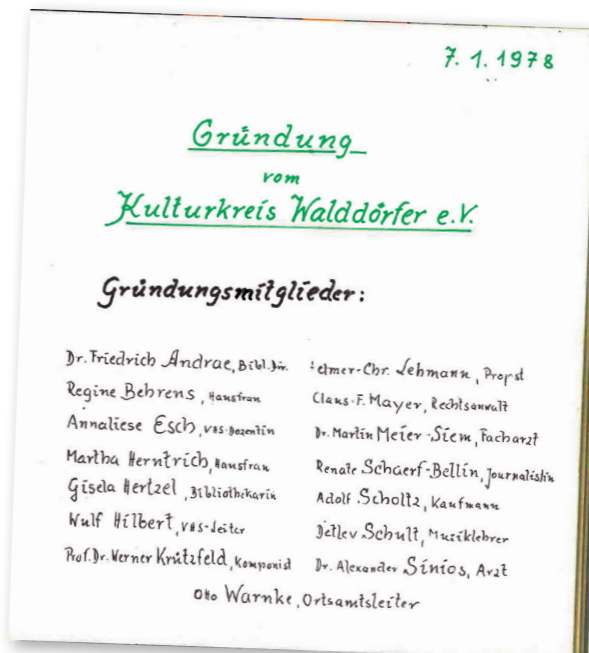 7. 1. 1978
Gründung
vom
Kulturkreis Walddörfer e.V.
Gründungsmitglieder:
Dr. Friedrich Andrae, Bibl.Dir.
Regine Behrens, Hausfrau
Annaliese Esch, VHS-Dozentin
Martha Herntrich, Hausfrau
Gisela Hertzel, Bibliothekarin
Wulf Hilbert, VHS-Leiter
Prof. Dr. Werner Krützfeld, Komponist
Helmer-Chr. Lehmann, Propst
Claus-F. Mayer, Rechtsanwalt
Dr. Martin Meier-Siem, Facharzt
Renate Schaerf-Bellin, Journalistin
Adolf Scholtz, Kaufmann
Detlev Schult, Musiklehrer
Dr. Alexander Sinios, Arzt
Otto Warnke, Ortsamtsleiter